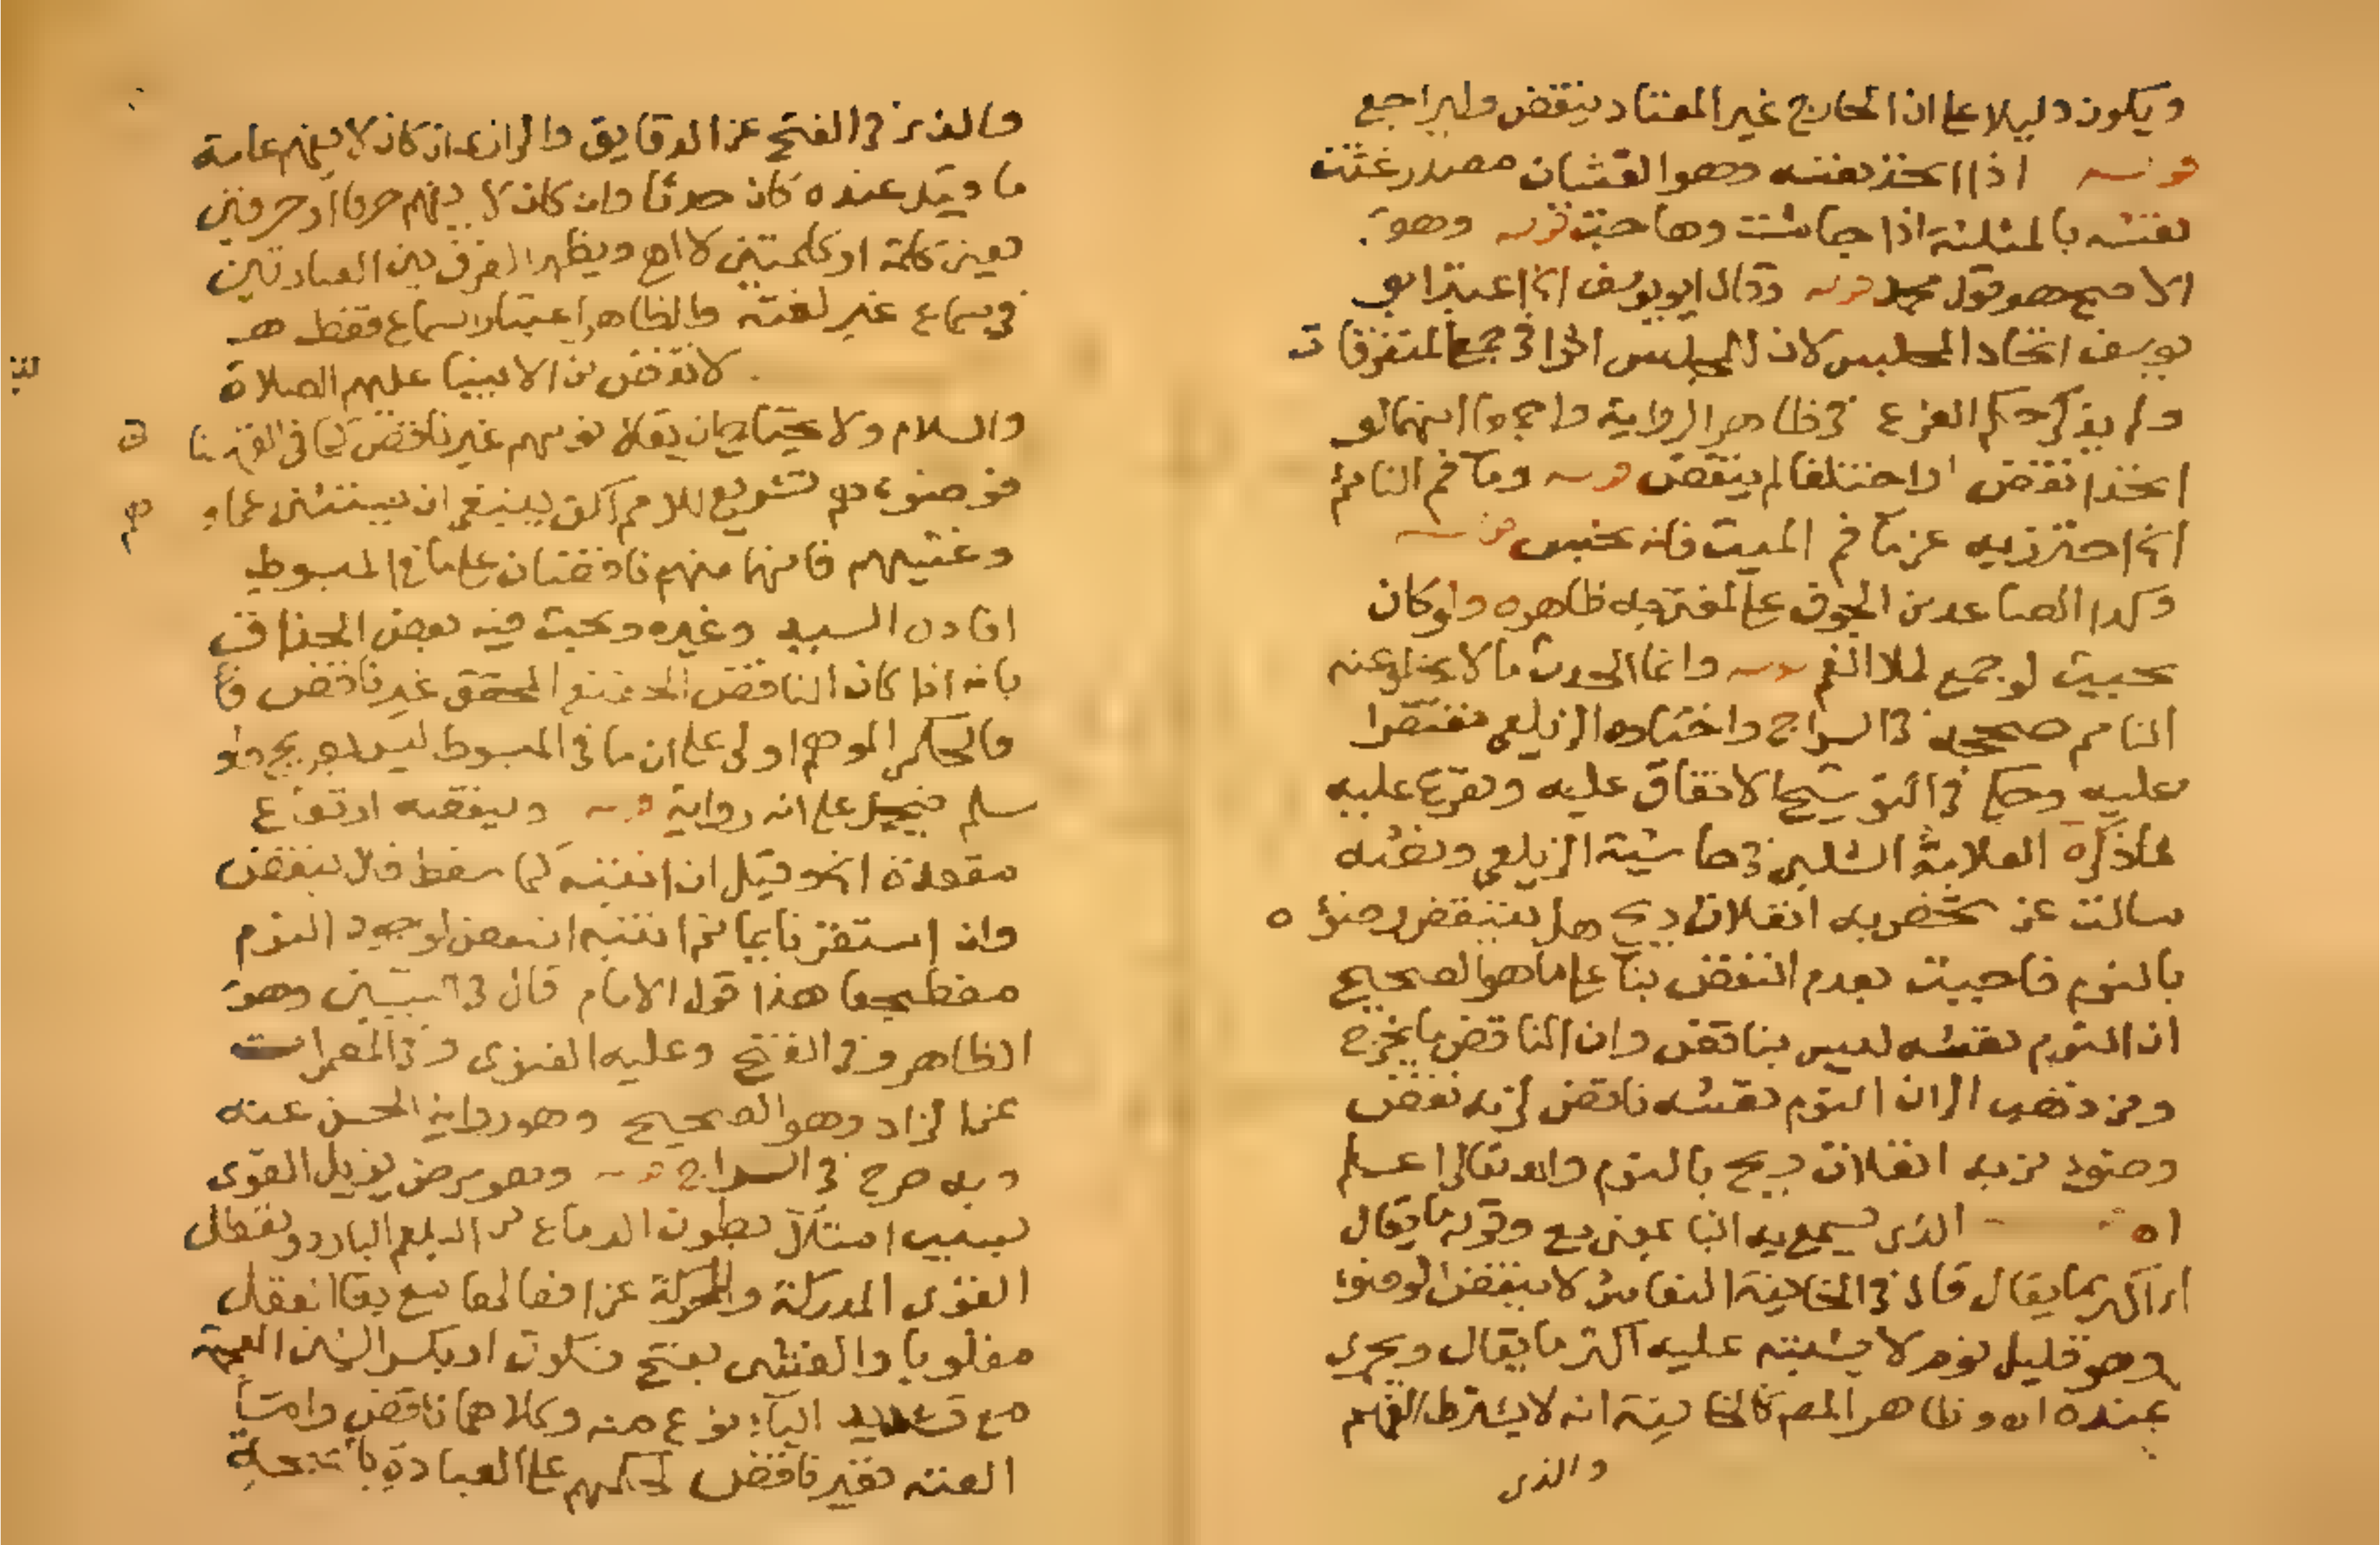 ويكون دليلا على ان الخارج غير المعتاد ينقض وليراجع
قوله اذا اتحد نفسه وهو الغثيان مصدر غثت
نفسه بالمثلثة اذا جاشت وهاجت قوله وهو
الاصح هو قول محمد قوله وقال ابو يوسف انما اعتبر ابو
يوسف اتحاد المجلس لان للمجلس اثرا في جمع المتفرقات
ولم يذكر حكم الفرع في ظاهر الرواية واجمعوا انهما لو
اتحدا نقض او اختلفا لم ينقض قوله وماء فم النائم
انما احترز به عن ماء فم الميت فانه نجس قوله
وكذا الصاعد من الجوف على المفتى به ظاهره ولو كان
بحيث لو جمع لملا الفم قوله وانما الحدث ما لا يخلو عنه
النائم صححه في السراج واختاره الزيلعي مقتصرا
عليه وحكى في التوشيح الاتفاق عليه وتفرع عليه
ما ذكره العلامة الشلبي في حاشية الزيلعي ونصه
سالت عن شخص به انفلات ريح هل ينتقض وضوءه
بالنوم فاجبت بعدم النقض بناء على ما هو الصحيح
ان النوم نفسه ليس بناقض وان الناقض ما يخرج
ومن ذهب الى ان النوم نفسه ناقض لزمه نقض
وضوء من به انفلات ريح بالنوم والله تعالى اعلم
اه الذي يسمع به الباء بمعنى مع وقوله ما يقال
اي اكثر ما يقال قال في الخانية النعاس لا ينقض الوضوء
وهو قليل نوم لا يشتبه عليه اكثر ما يقال ويجري
عنده اه وظاهر المص كالخانية انه لا يشترط الفهم
والذي
والذي في الفتح عن الدقايق والرازي ان كان لا يفهم عامة
ما قيل عنده كان حدثا وان كان لا يفهم حرفا او حرفين
يعني كلمة او كلمتين لا اه ويظهر الفرق بين العبارتين
في سماع غير لغته والظاهر اعتبار السماع فقط هـ
لا نقض من الانبيا عليهم الصلاة
والسلام ولا يحتاج ان يقال نومهم غير ناقض كما في القهستا
فوضوءهم تشريع للامم لكن ينبغي ان يستثنى اغماؤ
هم
وغشيهم فانهما منهم ناقضان على ما في المبسوط
افاده السيد وغيره وبحث فيه بعض الحذاق
بانه اذا كان الناقض الحقيقي المحقق غير ناقض
فالحكمي الموهم اولى على ان ما في المبسوط ليس بصريح ولو
سلم فيحمل على انه رواية قوله وليفقه ارتفاع
مقعدة انه قيل ان انتبه كما سقط فلا ينقض
وان استقر نائما ثم انتبه انتقض لوجود النوم
مضطجعا هذا قول الامام قال في التبيين وهو
الظاهر وفي الفتح وعليه الفتوى وفي المضمرات
عن الزاد وهو الصحيح وهو رواية الحسن عنه
وبه صرح في السراج قوله وهو مرض يزيل القوى
بسبب امتلاء بطون الدماغ من البلغم البارد وتعطل
القوى المدركة والمحركة عن افعالها مع بقاء العقل
مغلوبا والغشي بفتح فسكون او بكسر الشين المعجمة
مع تشديد الياء نوع منه وكلاهما ناقض واما
العته فغير ناقض لحكمهم على العبادة بالصحة